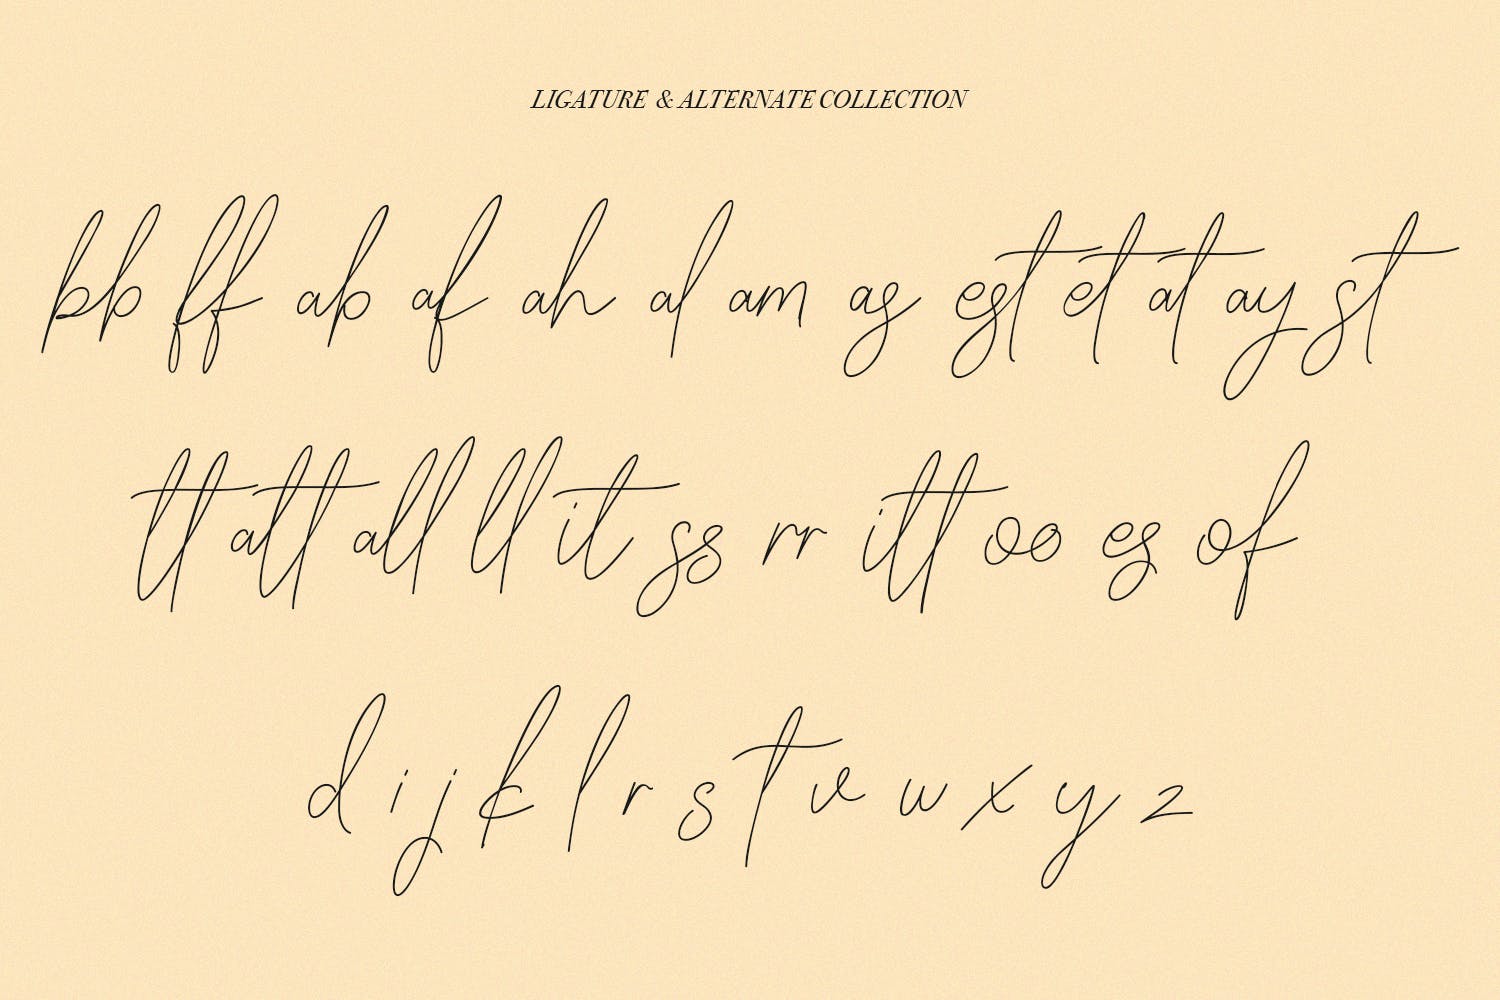 LIGATURE & ALTERNATE COLLECTION
bb ff ab af ah al am as est et at ay st
tt att all ll it ss rr itt oo es of
d i j k l r s t v w x y z